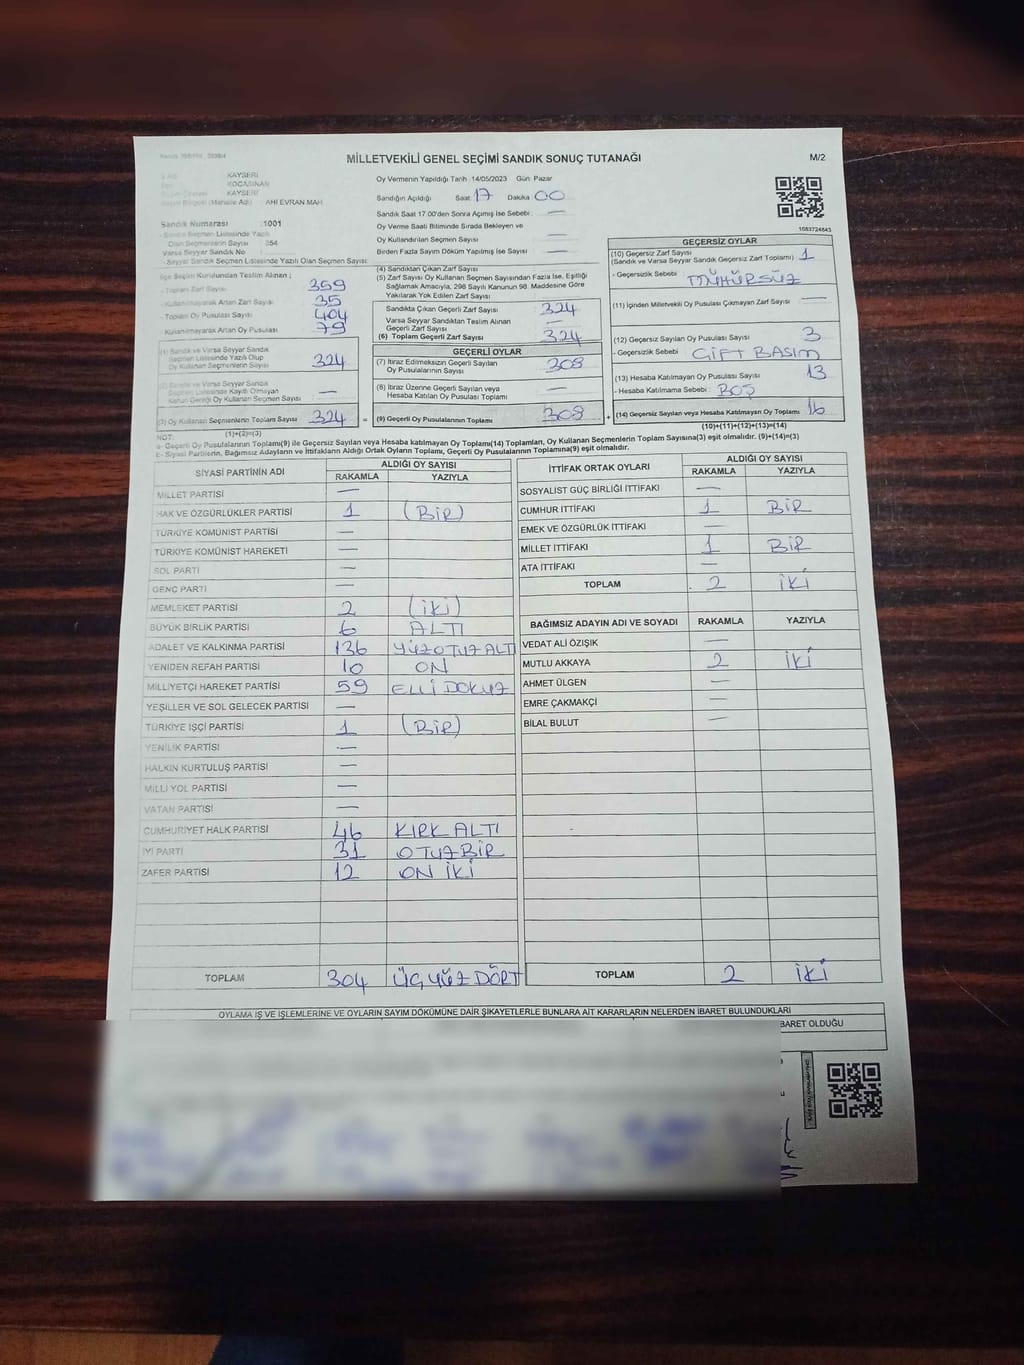 MİLLETVEKİLİ GENEL SEÇİMİ SANDIK SONUÇ TUTANAĞI
M/2
KAYSERİ
KOCASİNAN
KAYSERİ
Seçim Bölgesi (Mahalle Adı) AHİ EVRAN MAH
Sandık Numarası :1001
- Sandık Seçmen Listesinde Yazılı
Olan Seçmenlerin Sayısı :354
Varsa Seyyar Sandık No
- Seyyar Sandık Seçmen Listesinde Yazılı Olan Seçmen Sayısı:
İlçe Seçim Kurulundan Teslim Alınan ;
- Toplam Zarf Sayısı 359
- Kullanılmayarak Artan Zarf Sayısı 35
- Toplam Oy Pusulası Sayısı 404
- Kullanılmayarak Artan Oy Pusulası 79
(1) Sandık ve Varsa Seyyar Sandık
Seçmen Listesinde Yazılı Olup
Oy Kullanan Seçmenlerin Sayısı 324
(2) Sandık ve Varsa Seyyar Sandık
Seçmen Listesinde Kayıtlı Olmayan
Kanun Gereği Oy Kullanan Seçmen Sayısı —
(3) Oy Kullanan Seçmenlerin Toplam Sayısı 324 =
(1)+(2)=(3)
Oy Vermenin Yapıldığı Tarih :14/05/2023 Gün: Pazar
Sandığın Açıldığı Saat: 17 Dakika 00
Sandık Saat 17.00'den Sonra Açılmış İse Sebebi: —
Oy Verme Saati Bitiminde Sırada Bekleyen ve
Oy Kullandırılan Seçmen Sayısı —
Birden Fazla Sayım Döküm Yapılmış İse Sayısı —
(4) Sandıktan Çıkan Zarf Sayısı
(5) Zarf Sayısı Oy Kullanan Seçmen Sayısından Fazla İse, Eşitliği
Sağlamak Amacıyla, 298 Sayılı Kanunun 98. Maddesine Göre
Yakılarak Yok Edilen Zarf Sayısı
Sandıkta Çıkan Geçerli Zarf Sayısı 324
Varsa Seyyar Sandıktan Teslim Alınan
Geçerli Zarf Sayısı —
(6) Toplam Geçerli Zarf Sayısı 324
GEÇERLİ OYLAR
(7) İtiraz Edilmeksizin Geçerli Sayılan
Oy Pusulalarının Sayısı 308
(8) İtiraz Üzerine Geçerli Sayılan veya
Hesaba Katılan Oy Pusulası Toplamı —
(9) Geçerli Oy Pusulalarının Toplamı 308 +
1683724843
GEÇERSİZ OYLAR
(10) Geçersiz Zarf Sayısı
(Sandık ve Varsa Seyyar Sandık Geçersiz Zarf Toplamı) 1
- Geçersizlik Sebebi MÜHÜRSÜZ
(11) İçinden Milletvekili Oy Pusulası Çıkmayan Zarf Sayısı —
(12) Geçersiz Sayılan Oy Pusulası Sayısı 3
- Geçersizlik Sebebi ÇİFT BASIM
(13) Hesaba Katılmayan Oy Pusulası Sayısı 13
- Hesaba Katılmama Sebebi: BOŞ
(14) Geçersiz Sayılan veya Hesaba Katılmayan Oy Toplamı 16
(10)+(11)+(12)+(13)=(14)
NOT:
a- Geçerli Oy Pusulalarının Toplamı(9) ile Geçersiz Sayılan veya Hesaba katılmayan Oy Toplamı(14) Toplamları, Oy Kullanan Seçmenlerin Toplam Sayısına(3) eşit olmalıdır. (9)+(14)=(3)
b- Siyasi Partilerin, Bağımsız Adayların ve İttifakların Aldığı Ortak Oyların Toplamı, Geçerli Oy Pusulalarının Toplamına(9) eşit olmalıdır.
SİYASİ PARTİNİN ADI ALDIĞI OY SAYISI
RAKAMLA YAZIYLA
MİLLET PARTİSİ —
HAK VE ÖZGÜRLÜKLER PARTİSİ 1 (BİR)
TÜRKİYE KOMÜNİST PARTİSİ —
TÜRKİYE KOMÜNİST HAREKETİ —
SOL PARTİ —
GENÇ PARTİ —
MEMLEKET PARTİSİ 2 (İKİ)
BÜYÜK BİRLİK PARTİSİ 6 ALTI
ADALET VE KALKINMA PARTİSİ 136 YÜZOTUZALTI
YENİDEN REFAH PARTİSİ 10 ON
MİLLİYETÇİ HAREKET PARTİSİ 59 ELLİ DOKUZ
YEŞİLLER VE SOL GELECEK PARTİSİ —
TÜRKİYE İŞÇİ PARTİSİ 1 (BİR)
YENİLİK PARTİSİ —
HALKIN KURTULUŞ PARTİSİ —
MİLLİ YOL PARTİSİ —
VATAN PARTİSİ —
CUMHURİYET HALK PARTİSİ 46 KIRK ALTI
İYİ PARTİ 31 OTUZBİR
ZAFER PARTİSİ 12 ON İKİ
TOPLAM 304 ÜÇYÜZ DÖRT
İTTİFAK ORTAK OYLARI ALDIĞI OY SAYISI
RAKAMLA YAZIYLA
SOSYALİST GÜÇ BİRLİĞİ İTTİFAKI —
CUMHUR İTTİFAKI 1 BİR
EMEK VE ÖZGÜRLÜK İTTİFAKI —
MİLLET İTTİFAKI 1 BİR
ATA İTTİFAKI —
TOPLAM 2 İKİ
BAĞIMSIZ ADAYIN ADI VE SOYADI RAKAMLA YAZIYLA
VEDAT ALİ ÖZIŞIK —
MUTLU AKKAYA 2 İKİ
AHMET ÜLGEN —
EMRE ÇAKMAKÇİ —
BİLAL BULUT —
TOPLAM 2 İKİ
OYLAMA İŞ VE İŞLEMLERİNE VE OYLARIN SAYIM DÖKÜMÜNE DAİR ŞİKAYETLERLE BUNLARA AİT KARARLARIN NELERDEN İBARET BULUNDUKLARI
BARET OLDUĞU